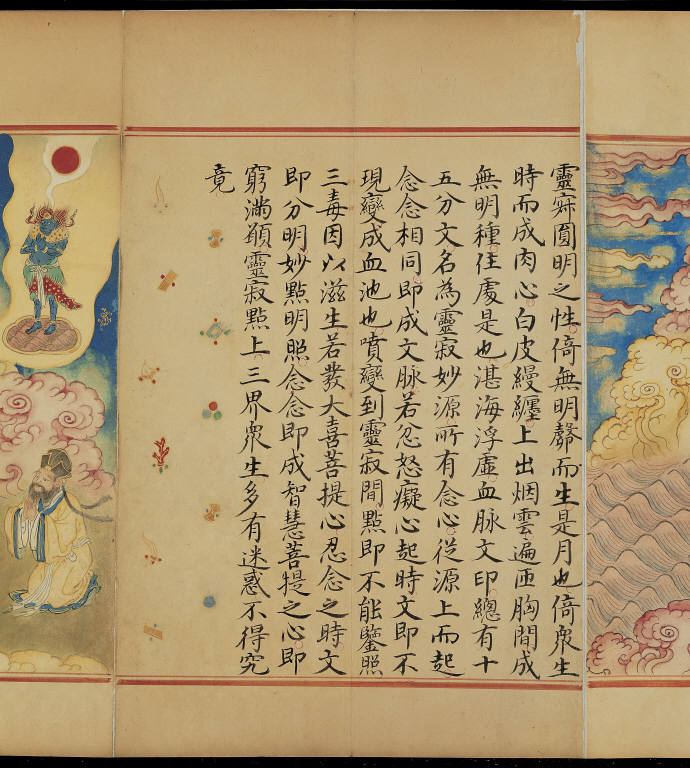 靈寂圓明之性倚無明聲而生是月也倚衆生
時而成肉心白皮縵纏上出烟雲遍匝胸間成
無明種住處是也湛海浮虛血脉文印總有十
五分文名為靈寂妙源所有念心從源上而起
念念相同即成文脉若忿怒癡心起時文即不
現變成血池也噴變到靈寂間點即不能鑒照
三毒因以滋生若發大喜菩提心忍念之時文
即分明妙點明照念念即成智慧菩提之心即
窮滿頦靈寂點上三界衆生多有迷惑不得究
竟